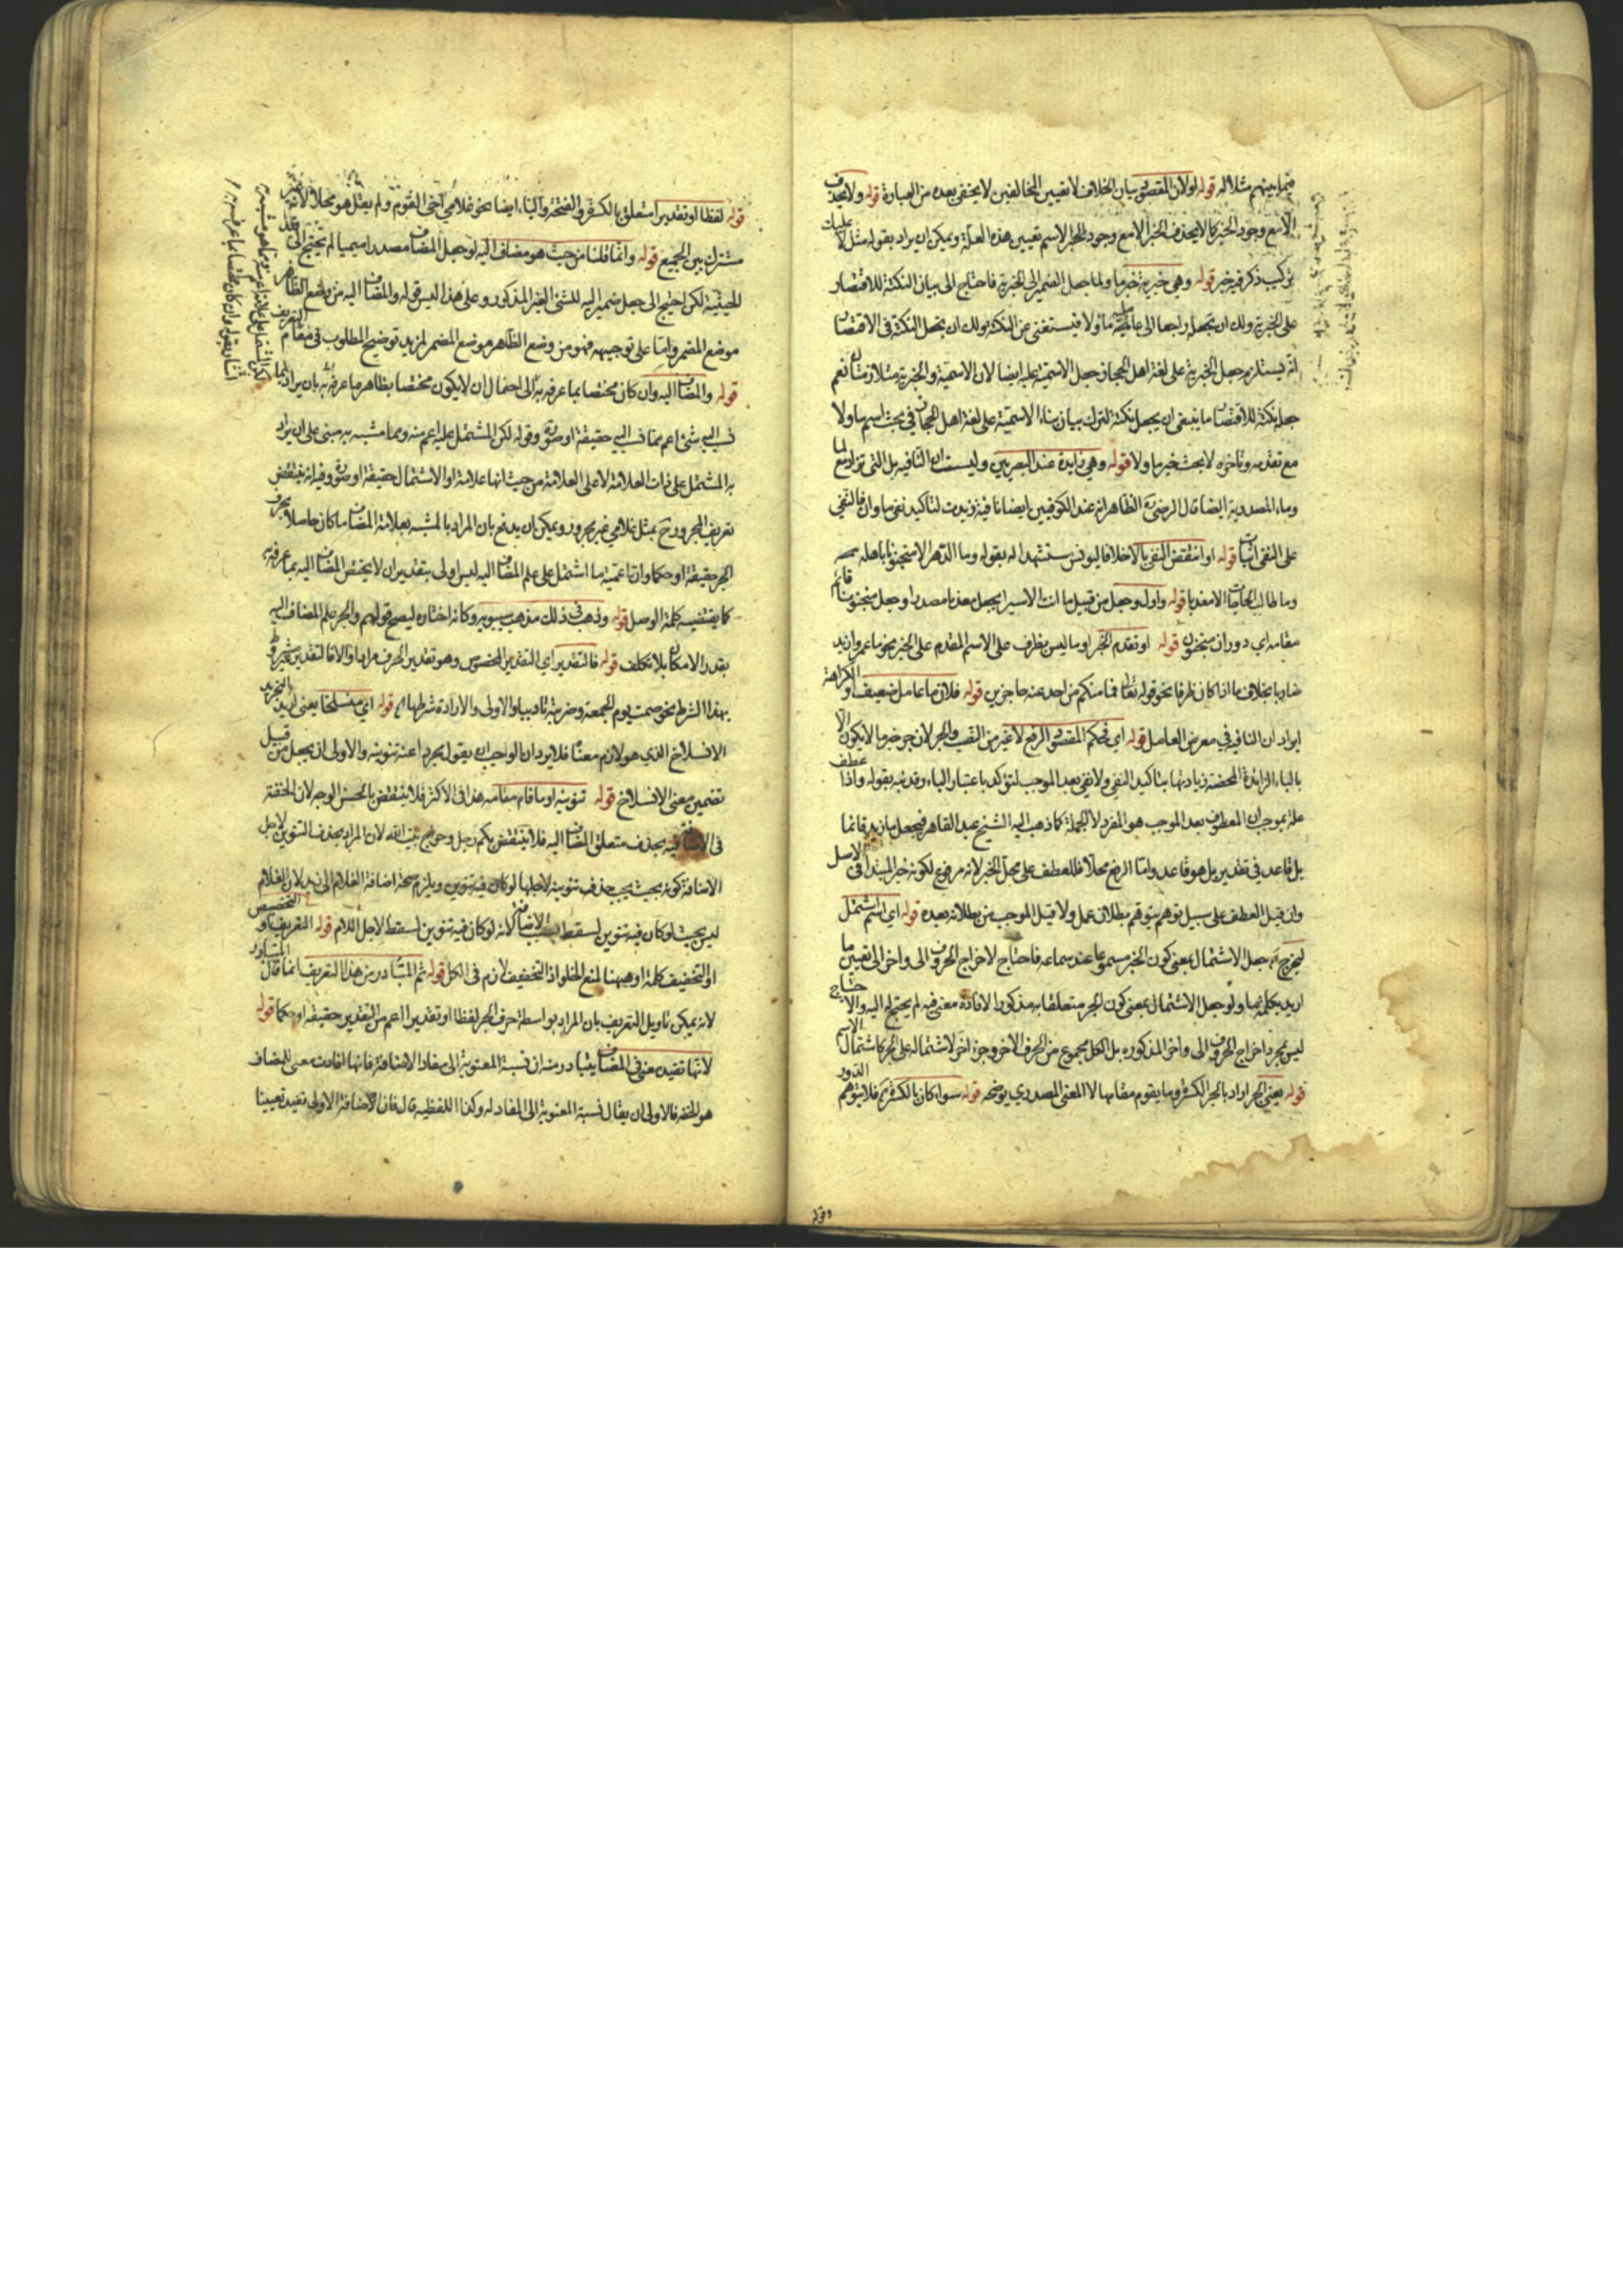 فيما بينهم مثلا اله قوله او لان المقصود بيان الخلاف لا تعيين المخالفين لا يخفى بعده من العبارة قوله ولا يحذف
الا مع وجود الخبر كما لا يحذف الخبر الا مع وجود الاسم تعيين هذه العلة ويمكن ان يراد بقوله مثل لا عليك
تركيب ذكر فيه خبر قوله وهي خبرية خبر ما ولا جعل الضمير الى الخبرية فاحتاج الى بيان النكتة للاقتصار
على الخبرية ولك ان تجعل راجعا الى ما ولا فيستغنى عن النكتة ولك ان تجعل النكتة في الاقتصار
انه يستلزم جعل الخبرية على لغة اهل الحجاز جعل الاسمية عليه ايضا لان الاسمية والخبرية متلازمتان نعم
جعل نكتة للاقتصار ما ينبغي ان يجعل نكتة لترك بيان بناء الاسمية على لغة اهل الحجاز في بحث اسم ما ولا
مع تقدمه وتاخره لا بحث خبر ما ولا قوله وهي زايدة عند البصريين وليست ان النافيه بل التي تزاد مع لما
وما المصدرية ايضا قال الرضي الظاهر انه عند الكوفيين ايضا نافية زيدت لتاكيد نفي ما وان فالنفي
على النفي اثبات قوله او انتقض النفي بالا خلافا ليونس مستشهدا له بقوله وما الدهر الا منجنونا باهله
وما طالب الحاجات الا معذبا قوله واول وجعل من قبيل ما انت الا سيرا بجعل معذبا مصدرا وجعل منجنونا قائم
مقامه اي دوران منجنون قوله او تقدم الخبر او ما ليس بظرف على الاسم المقدم على الخبر نحو ما عمروا زيد
ضاربا بخلاف ما اذا كان ظرفا نحو قوله تعالى فما منكم من احد عنه حاجزين قوله فلان ما عامل ضعيف
ايراد ان النافيه في معرض العامل قوله اي فحكم المقصود الرفع لا غير من النصب والجر لان جر خبر ما لا يكون الا
بالباء الزائدة المحضة زيادتها بتاكيد النفي ولا نفي بعد الموجب لتؤكد باعتبار الباء وقد نبه بقوله واذا عطف
عليه بموجب ان المعطوف بعد الموجب هو المفرد لا الجملة كما ذهب اليه الشيخ عبد القاهر فيجعل ما زيد قائما
بل قاعد في تقدير بل هو قاعد واما الرفع محلا فللعطف على محل الخبر لانه مرفوع لكونه خبر المبتدا في الاصل
وان قيل العطف على سبيل توهم بطلان عمل ولا قبل الموجب من بطلانه بعده قوله اي اسم اشتمل
ليخرج جعل الاشتمال بمعنى كون الخبر مسموعا عند سماعه فاحتاج لاخراج الحروف الى واخر الى تعيين ما
اريد بكلمة ما ولو جعل الاشتمال بمعنى كون الجر متعلقا به مذكورا لافادة معنى فيه لم يحتج اليه والا
ليس مجرد اخراج الحروف الى واخر المذكوره بل الكل مجموع من الحرف الآخر وجزء آخر لاشتماله على الجر كاشتمال الاسم
قوله يعني الجر اراد بالجر الكسرة وما يقوم مقامها لا المعنى المصدري يوضحه قوله سواء كان بالكسرة فلا يتوهم الدور
وقوله
قوله لفظا او تقديرا متعلق بالكسرة والفتحة والياء ايضا نحو غلامي آخي القوم ولم يقل هو محلا لانه
مشترك بين الجميع قوله وانما قلنا من حيث هو مضاف اليه لو جعل المضاف مصدرا ميميا لم يحتج الى
الحيثية لكن احتيج الى جعل ضمير اليه للشئ الغير المذكور وعلى هذا ليس قوله والمضاف اليه من وضع الظاهر
موضع المضمر واما على توجيهه فهو من وضع الظاهر موضع المضمر لمزيد توضيح المطلوب في مقام التعريف
قوله والمضاف اليه وان كان مختصا بما عرفه به الى احتمال ان لا يكون مختصا بظاهر ما عرفه به بان يراد بما
نسب اليه شئ اعم مما نسب اليه حقيقة او صورة وقوله لكن المشتمل عليه اعم منه ومما مشبه به مبنى على ان يراد
به المشتمل على ذات العلامة لا على العلامة من حيث انها علامة او الاشتمال حقيقة او صورة وفيه انه ينتقض
تعريف المجرور ح بمثل غلامي غير مجرور ويمكن ان يدفع بان المراد بالمشبه بعلامة المضاف ما كان حاصلا بحرف
الجر حقيقة او حكما وان تاعميه ما اشتمل على علم المضاف اليه ليس اولى بتقدير ان لا يختص المضاف اليه بما عرفه به
كما يقتضيه كلمة الوصل قوله وذهب في ذلك مذهب سيبويه وكانه اختاره ليصح قولهم والجر علم المضاف اليه
بقدر الامكان بلا تكلف قوله فالتقدير اي التقدير المخصوص وهو تقدير الحرف مرادا والا فالتقدير
بهذا الشرط نحو صمت يوم الجمعة وضربته تاديبا والاولى والارادة شرطها اه قوله اي منسلخا يعني اريد بالتجريد
الانسلاخ الذي هو لازم معناه فلا يرد ان الواجب ان يقول مجردا عنه تنوينه والاولى ان يجعل من قبيل
تضمين معنى الانسلاخ قوله تنوينه او ما قام مقامه هذا في الاكثر فلا ينتقض بالحسن الوجه لان الخفة
فيه بحذف متعلق المضاف اليه فلا ينتقض بكم رجل وحواج بيت الله لان المراد بحذف التنوين لاجل
الاضافة كونه بحيث يجب حذف تنوينه لاجلها لو كان فيه تنوين ويلزم صحة اضافة الغلام الى زيد لان الغلام
ليس بحيث لو كان فيه تنوين لسقط بسبب الاضافة لانه لو كان فيه تنوين لسقط لاجل اللام قوله التعريف او التخصيص
او التخفيف كلمة او ههنا لمنع الخلو اذ التخفيف لازم في الكل قوله ثم المتبادر من هذا التعريف انما قال المتبادر
لانه يمكن تاويل التعريف بان المراد بواسطة حرف الجر لفظا او تقديرا اعم من التقدير حقيقة او حكما قوله
لانها تفيد معنى في المضاف يتبادر منه ان نسبة المعنوية الى مفاد الاضافة فانها افادت معنى للمضاف
هو الخفه فالاولى ان يقال نسبة المعنوية الى المفاد له وكذا اللفظيه قال فان الاضافة الاولى تفيد تعيينا